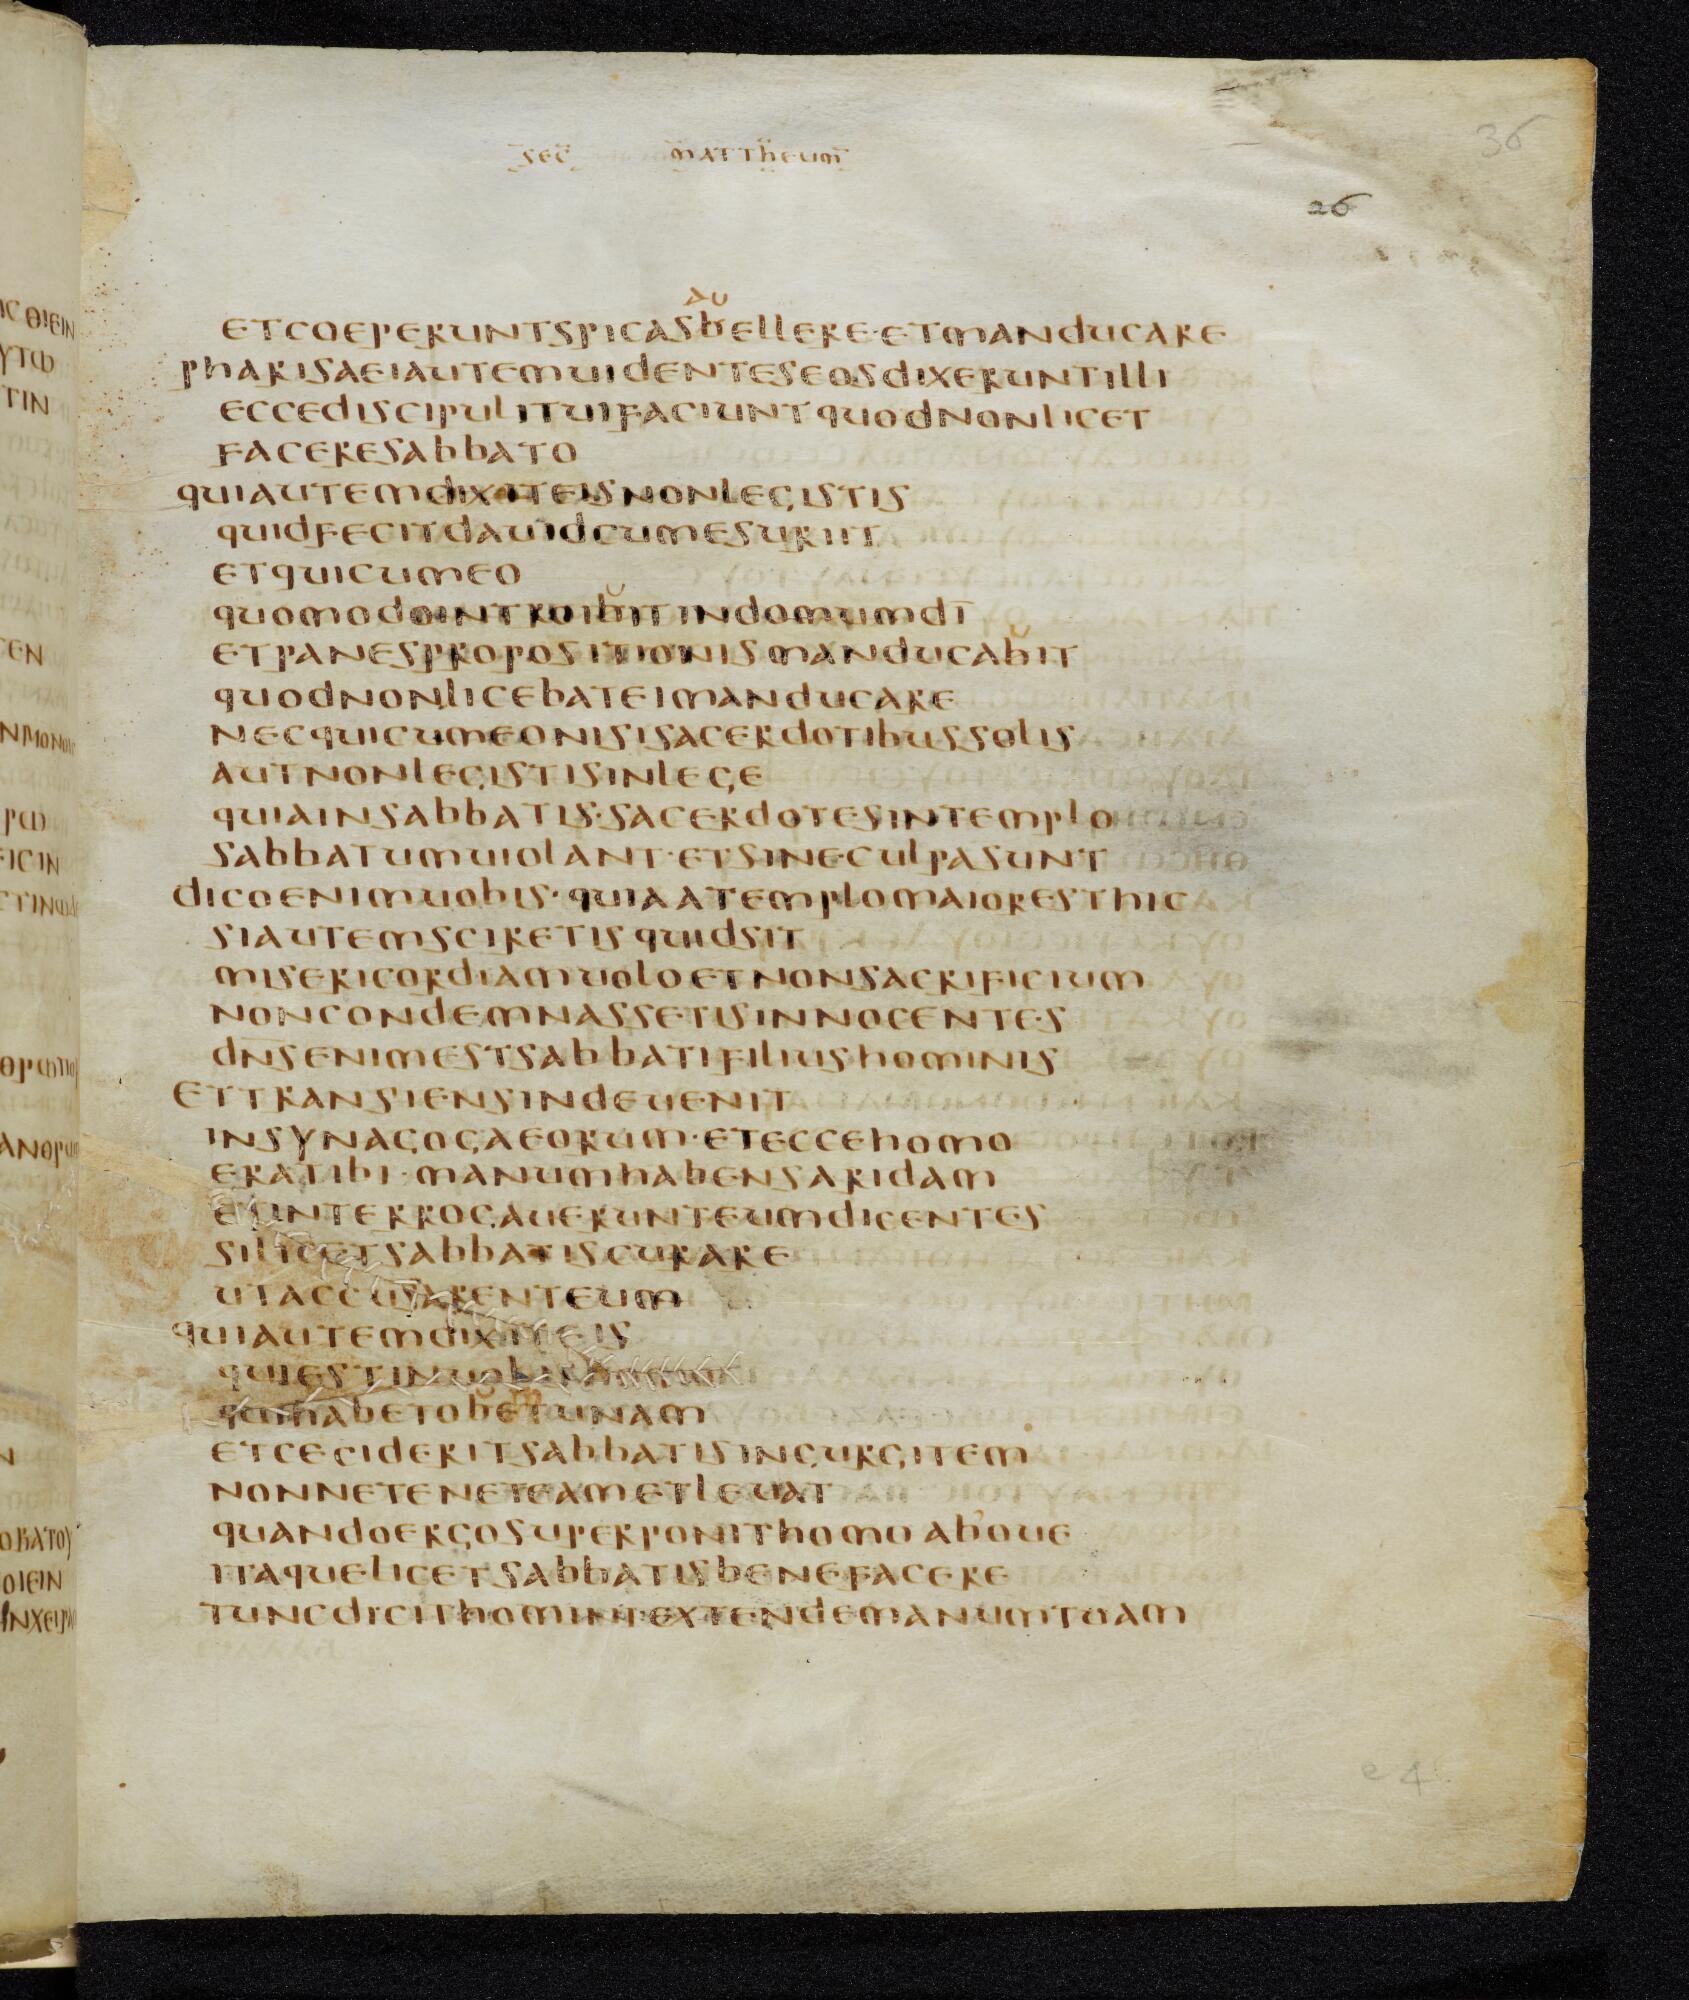 SEC MATTHEUM
36
26
AU
ETCOEPERUNTSPICASBELLERE·ETMANDUCARE
PHARISAEIAUTEMUIDENTESEOSDIXERUNTILLI
ECCEDISCIPULITUIFACIUNTQUODNONLICET
FACERESABBATO
QUIAUTEMDIXITEISNONLEGISTIS
QUIDFECITDAUIDCUMESURIIT
ETQUICUMEO
QUOMODOINTROIBITINDOMUMDI
ETPANESPROPOSITIONISMANDUCABIT
QUODNONLICEBATEIMANDUCARE
NECQUICUMEONISISACERDOTIBUSSOLIS
AUTNONLEGISTISINLEGE
QUIAINSABBATIS·SACERDOTESINTEMPLO
SABBATUMUIOLANT·ETSINECULPASUNT
DICOENIMUOBIS·QUIAATEMPLOMAIORESTHIC
SIAUTEMSCIRETISQUIDSIT
MISERICORDIAMUOLOETNONSACRIFICIUM
NONCONDEMNASSETISINNOCENTES
DNSENIMESTSABBATIFILIUSHOMINIS
ETTRANSIENSINDEUENIT
INSYNAGOGAEORUM·ETECCEHOMO
ERATIBI·MANUMHABENSARIDAM
ETINTERROGAUERUNTEUMDICENTES
SILICETSABBATISCURARE
UTACCUSARENTEUM
QUIAUTEMDIXITEIS
QUIESTINUOBISHOMO
QUIHABETOBETUNAM
ETCECIDERITSABBATISINGURGITEM
NONNETENETEAMETLEUAT
QUANDOERGOSUPERPONITHOMOABOUE
ITAQUELICETSABBATISBENEFACERE
TUNCDICITHOMINIEXTENDEMANUMTUAM
e 4